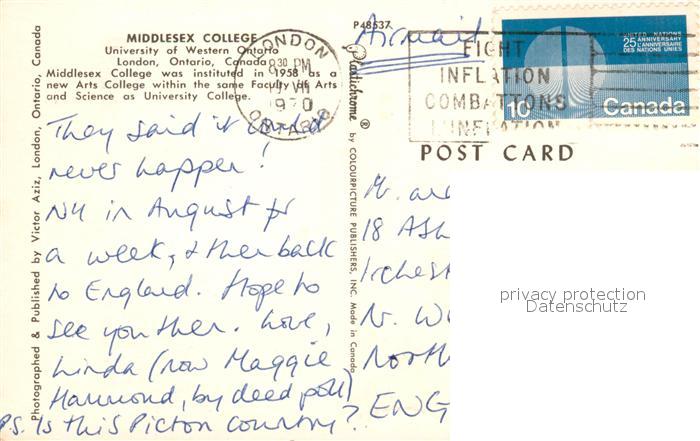 MIDDLESEX COLLEGE
University of Western Ontario
London, Ontario, Canada
Middlesex College was instituted in 1958 as a
new Arts College within the same Faculty of Arts
and Science as University College.
They said it could
never happen!
NY in August for
a week, & then back
to England. Hope to
see you then. Love,
Linda (now Maggie
Hammond, by deed poll)
P.S. Is this Picton country?
Photographed & Published by Victor Aziz, London, Ontario, Canada
P48537
Plastichrome ® by COLOURPICTURE PUBLISHERS, INC. Made in Canada
LONDON
8 30 PM
VII
1970
ONTARIO
Airmail
FIGHT
INFLATION
COMBATTONS
L'INFLATION
UNITED NATIONS
25 ANNIVERSARY
L'ANNIVERSAIRE
DES NATIONS UNIES
10 Canada
POST CARD
18 ASh
Irchest
N. W
North
ENG
privacy protection
Datenschutz